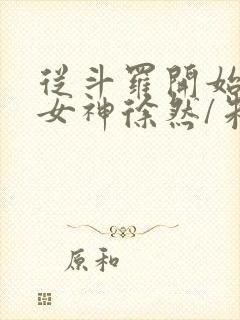 從斗羅開始
女神徐然/
原和